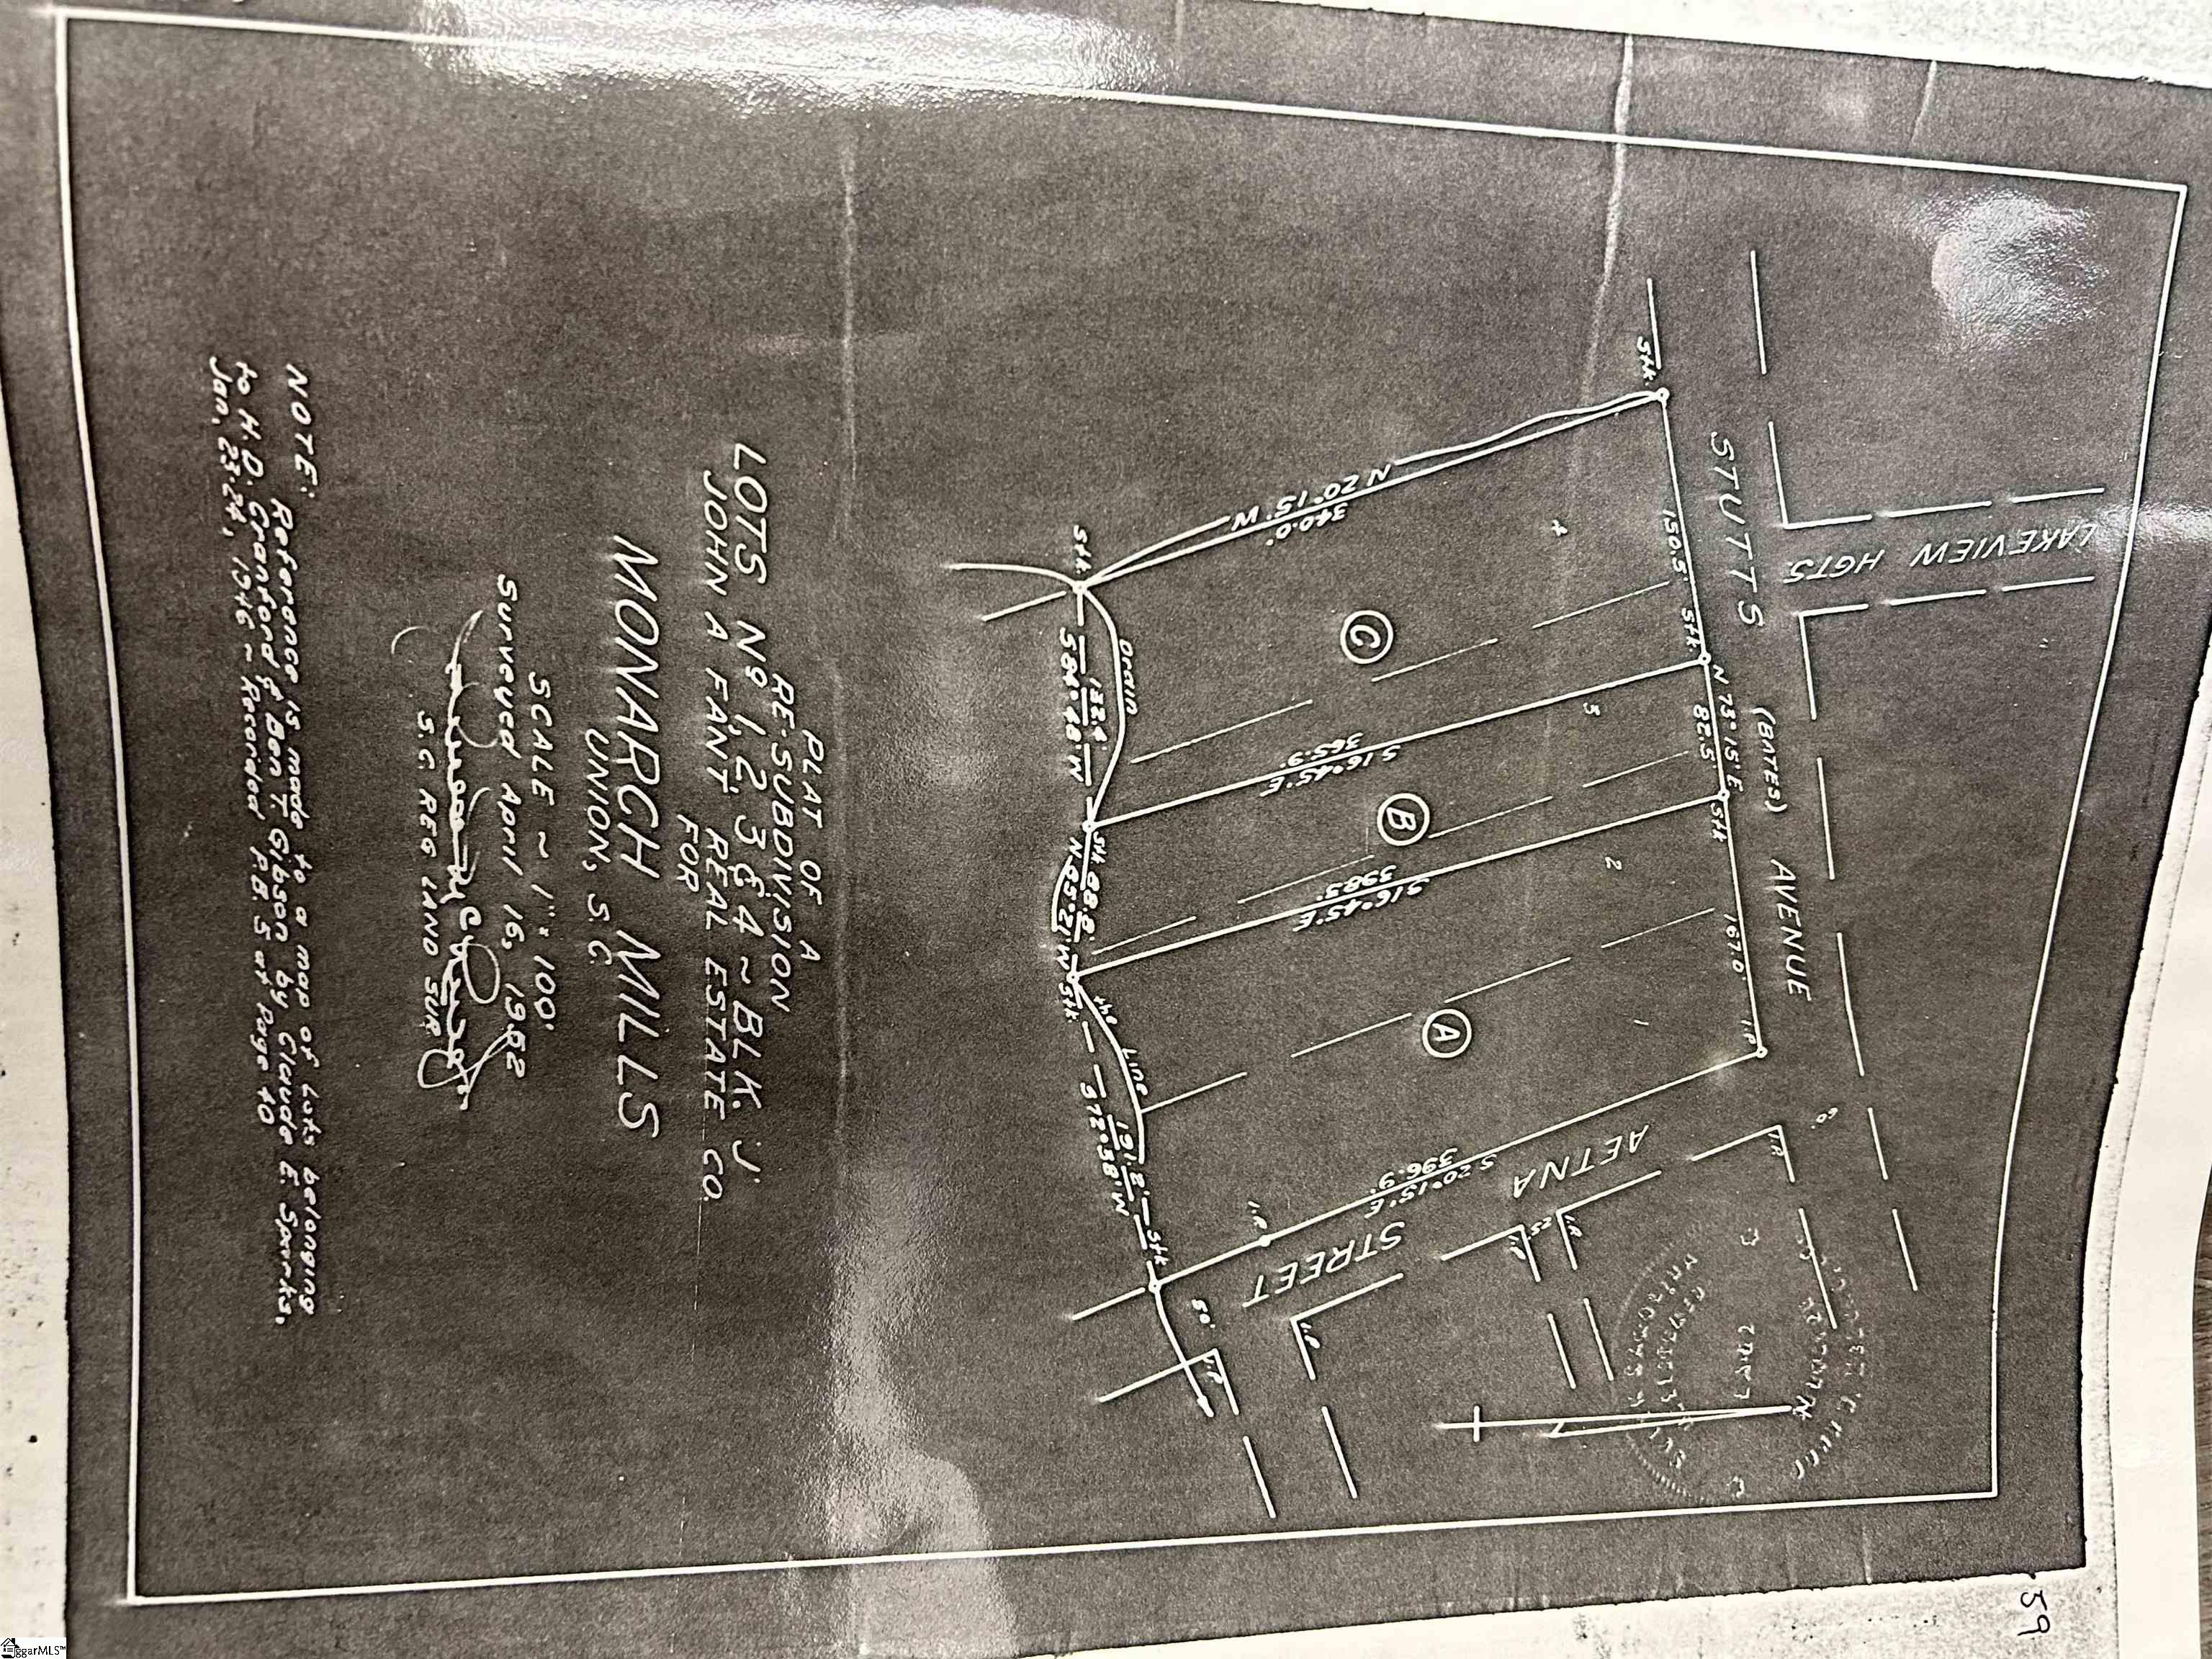 59
LAKEVIEW HGTS
STUTTS (BATES) AVENUE
N 73° 15' E
Stk.
150.5'
Stk
82.5'
Stk
167.0'
I.P.
60'
N 20° 15' W
340.0'
4
C
3
S 16° 45' E
365.9'
B
2
S 16° 45' E
398.3'
A
1
AETNA STREET
S 20° 15' E
396.9'
I.P.
I.P.
I.P.
25'
I.P.
I.P.
I.P.
50'
N
Stk.
Drain
132.4'
S 84° 40' W
Stk
88.8'
N 85° 21' W
Stk.
Gully
191.2'
S 72° 38' W
Stk.
PLAT OF A
RE-SUBDIVISION
LOTS Nº 1, 2, 3 & 4 ~ BLK. J.
JOHN A FANT REAL ESTATE CO.
FOR
MONARCH MILLS
UNION, S.C.
SCALE ~ 1" = 100'
Surveyed April 16, 1952
S.C. REG LAND SUR.
NOTE: Reference is made to a map of Lots belonging
to H.D. Cranford & Ben T. Gibson by Claude E. Sparks,
Jan. 23-24, 1946 ~ Recorded P.B. 5 at Page 40
ggarMLS™